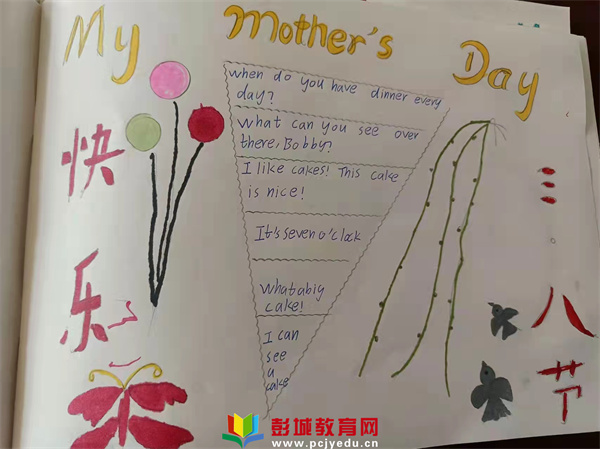 My Mother's Day
when do you have dinner every
day?
What can you see over
there, Bobby?
I like cakes! This cake
is nice!
It's seven o'clock
Whatabig
cake!
I can
see
a
cake
快
乐
三
八
节
彭城教育网
www.pcjyedu.cn